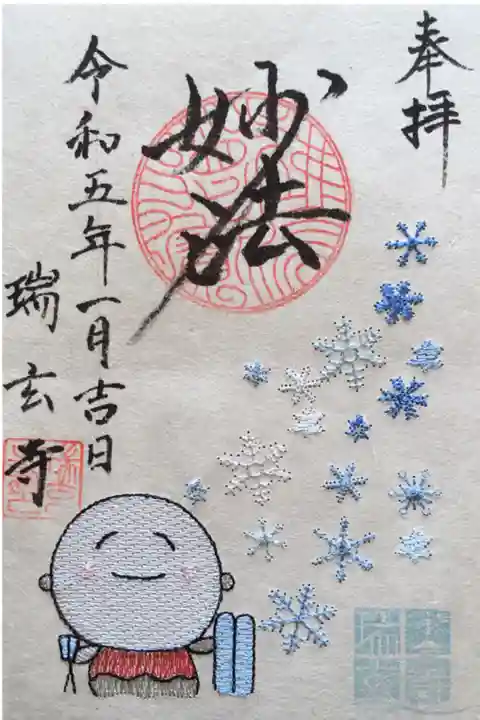 奉拝
妙法
令和五年一月吉日
瑞玄寺